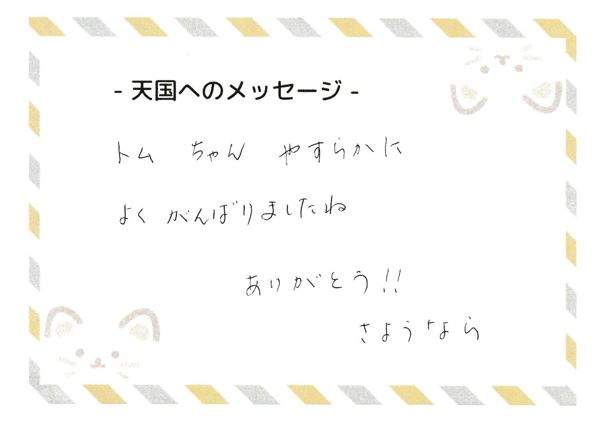 - 天国へのメッセージ -
トム ちゃん やすらかに
よく がんばりましたね
ありがとう!!
さようなら